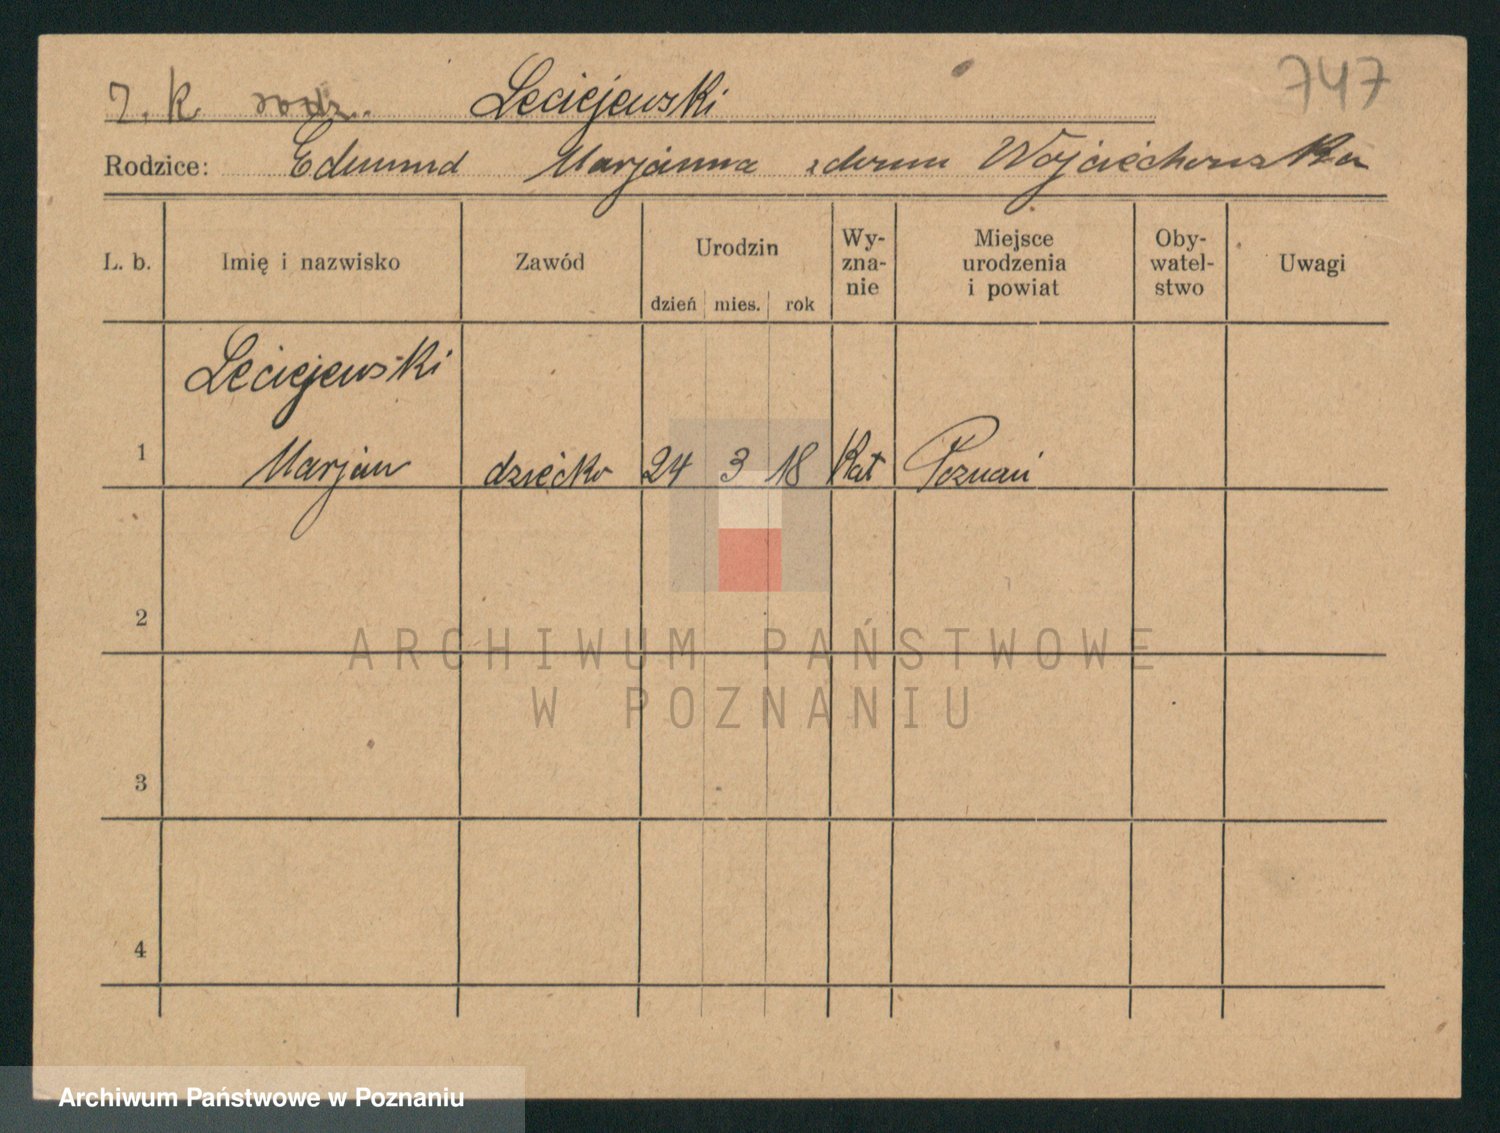 z. k rodz. Leciejewski 747
Rodzice: Edmund Marjanna z domu Wojciechowska
L. b. Imię i nazwisko Zawód Urodzin dzień mies. rok Wy-zna-nie Miejsce urodzenia i powiat Oby-watel-stwo Uwagi
Leciejewski
1 Marjan dziecko 24 3 18 Kat Poznań
2
3
4
ARCHIWUM PAŃSTWOWE
W POZNANIU
Archiwum Państwowe w Poznaniu